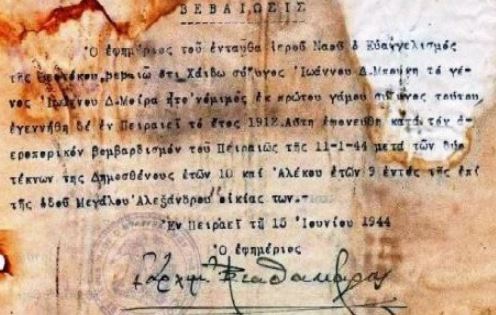 ΒΕΒΑΙΩΣΙΣ
Ὁ ἐφημέριος τοῦ ἐνταῦθα ἱεροῦ Ναοῦ ὁ Εὐαγγελισμός
τῆς Θεοτόκου, βεβαιῶ ὅτι Χάιδω σύζυγος Ἰωάννου Δ.Μπούνη τό γέ-
νος Ἰωάννου Δ.Μοίρα ἦτο νόμιμός ἐκ πρώτου γάμου σύζυγος τούτου,
ἐγεννήθη δέ ἐν Πειραιεῖ τό ἔτος 1912. Αὕτη ἐφονεύθη κατά τόν ἀ-
εροπορικόν βομβαρδισμόν τοῦ Πειραιῶς τῆς 11-1-44 μετά τῶν δύο
τέκνων της Δημοσθένους ἐτῶν 10 καί Ἀλέκου ἐτῶν 9 ἐντός τῆς ἐπί
τῆς ὁδοῦ Μεγάλου Ἀλεξάνδρου οἰκίας των.-
Ἐν Πειραεῖ τῇ 15 Ἰουνίου 1944
Ὁ ἐφημέριος